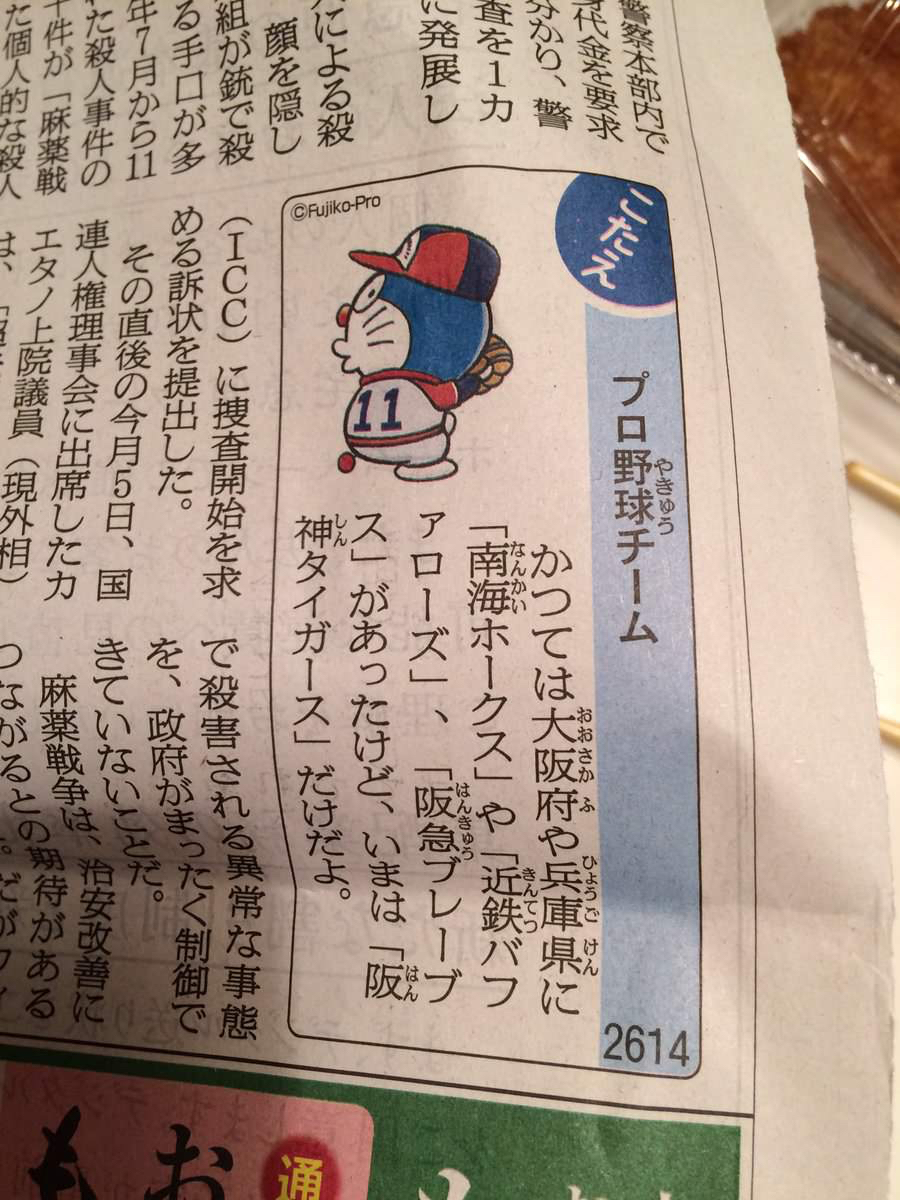 警察本部内で
身代金を要求
分かり、警
査を1カ
に発展し
による殺
顔を隠し
組が銃で殺
る手口が多
年7月から11
た殺人事件の
件が「麻薬戦
た個人的な殺人
©Fujiko-Pro
こたえ
プロ野球チーム
やきゅう
かつては大阪府や兵庫県に
おおさかふ ひょうごけん
「南海ホークス」や「近鉄バフ
なんかい きんてつ
ァローズ」、「阪急ブレーブ
はんきゅう
ス」があったけど、いまは「阪
はん
神タイガース」だけだよ。
しん
2614
11
（ICC）に捜査開始を求
める訴状を提出した。
その直後の今月5日、国
連人権理事会に出席したカ
エタノ上院議員（現外相）
は、「
で殺害される異常な事態
を、政府がまったく制御で
きていないことだ。
麻薬戦争は、治安改善に
つながるとの期待がある
通
お
も